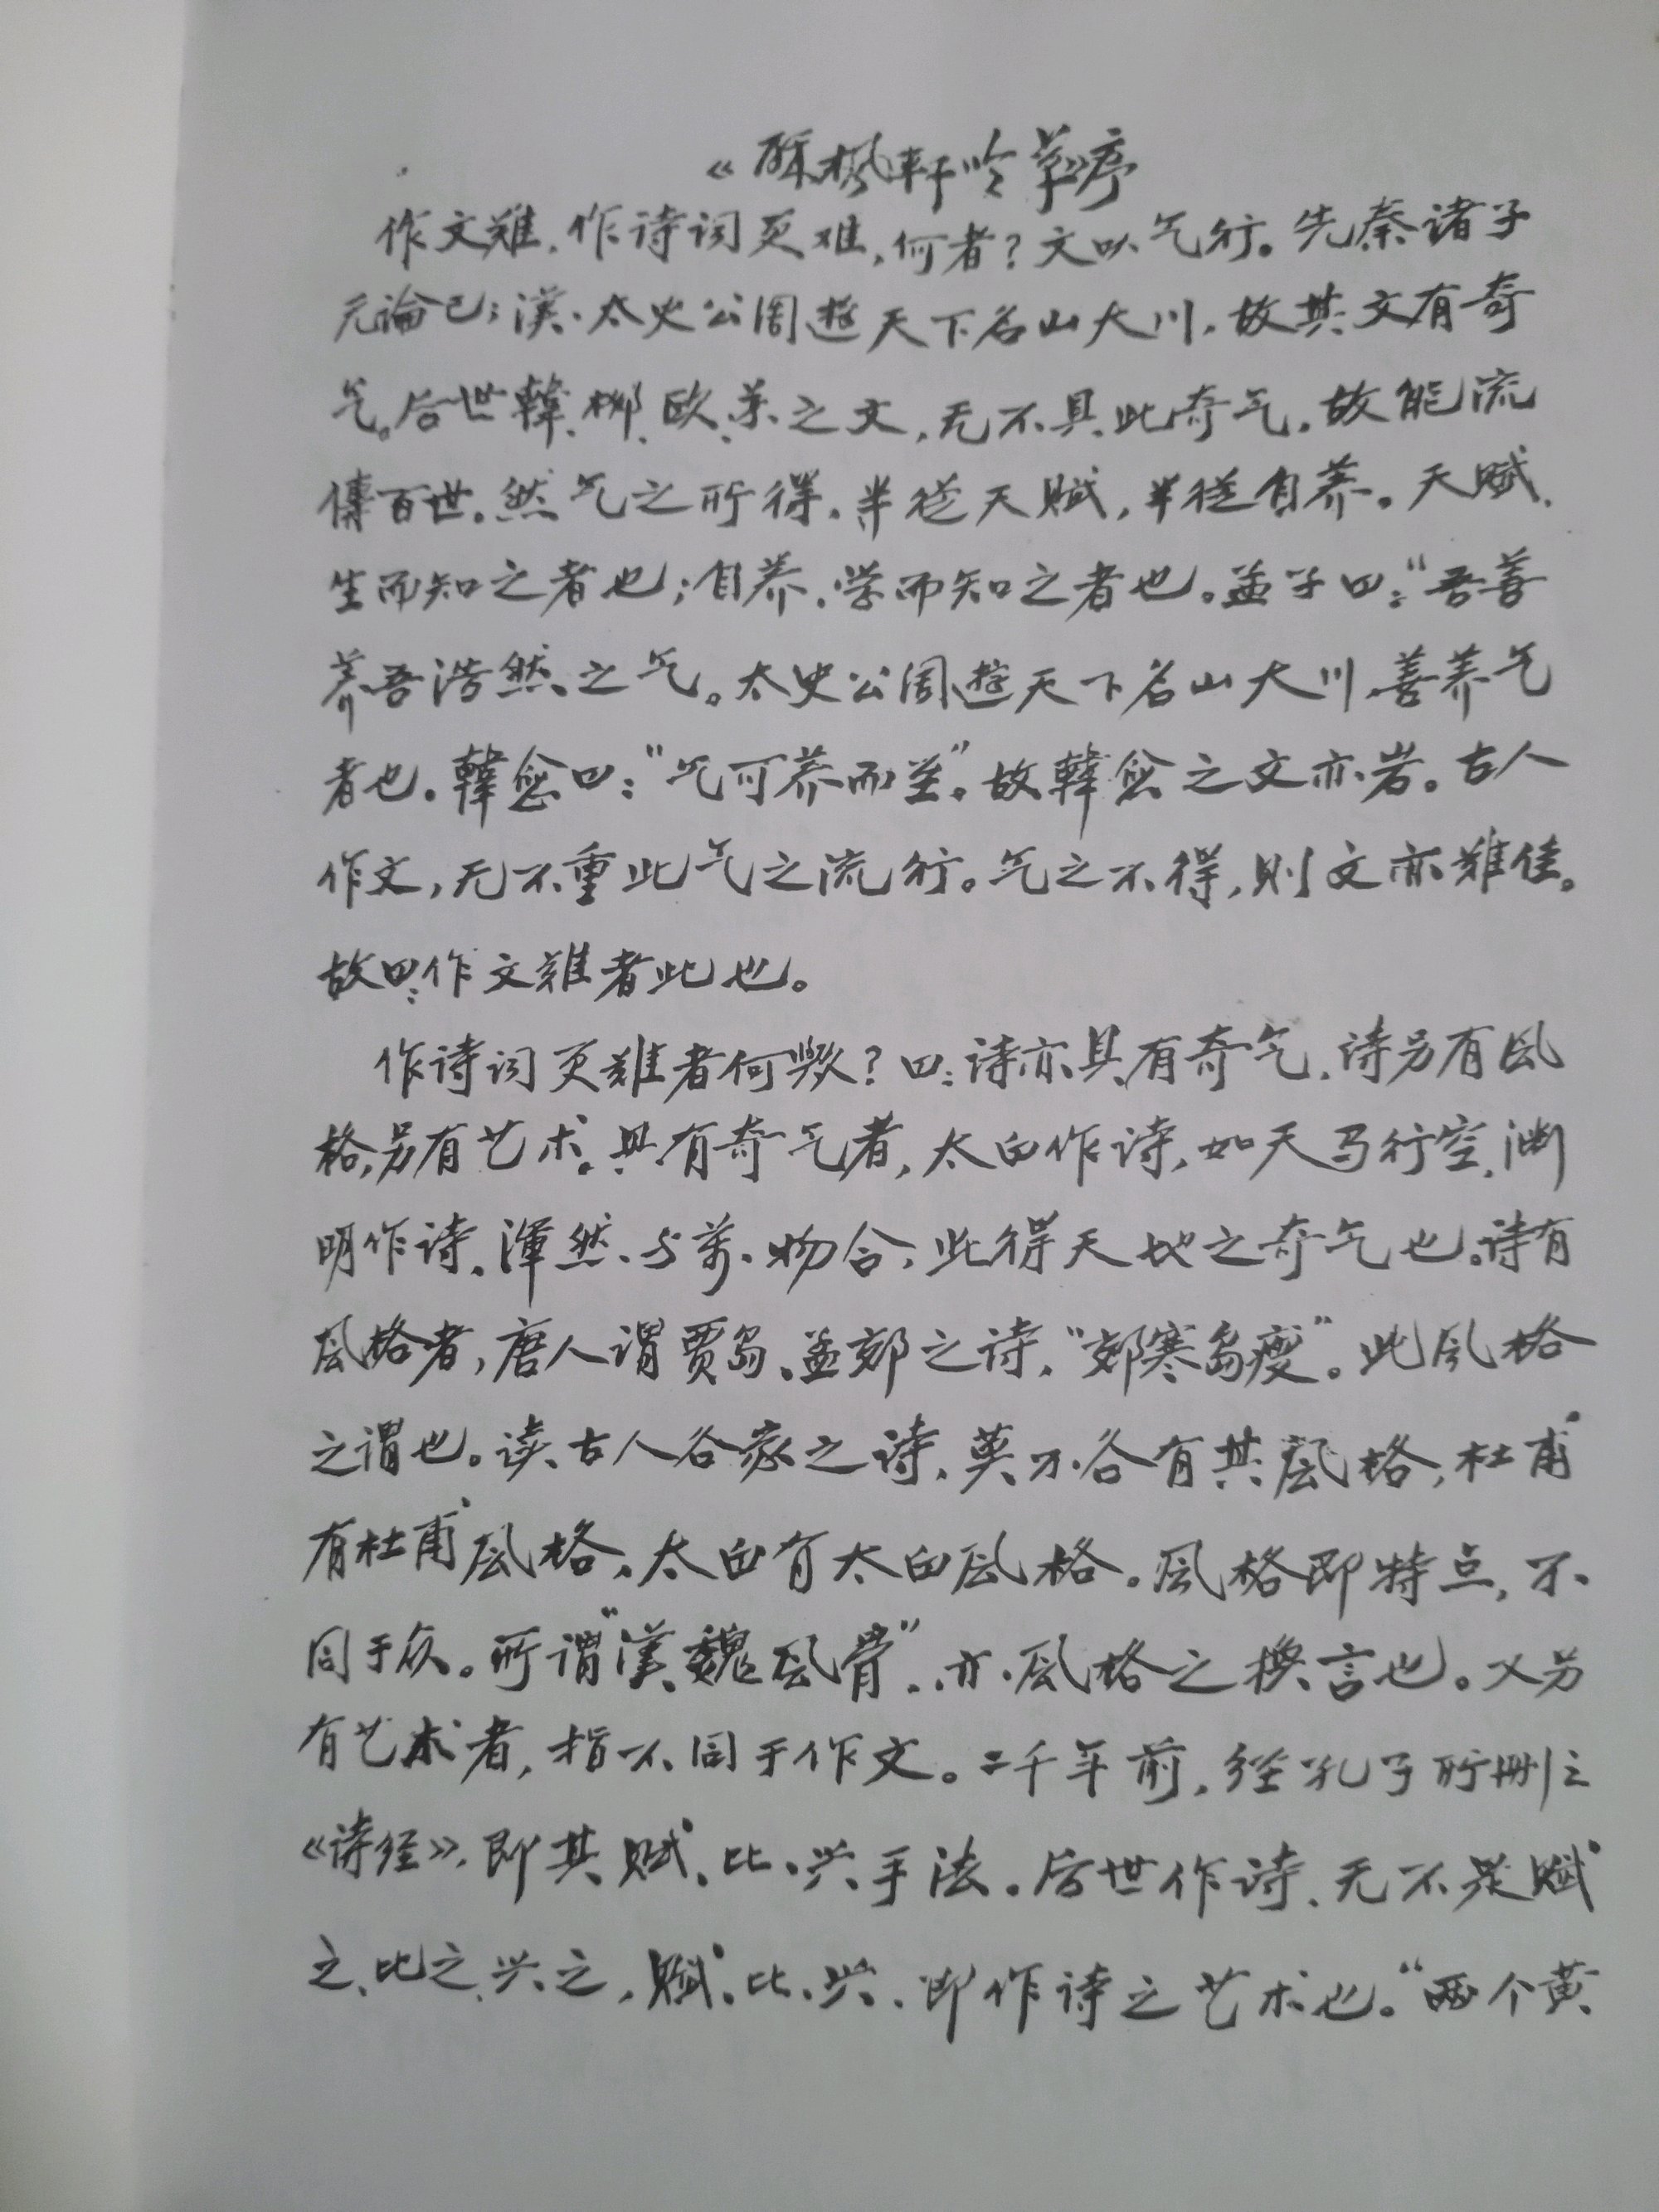 枫轩吟草》序
作文难,作诗词更难,何者?文以气行。先秦诸子
无论已;漢·太史公周遊天下名山大川,故其文有奇
气。后世韓、柳、欧、苏之文,无不具此奇气,故能流
傳百世。然气之所得,半從天赋,半從自养。天赋,
生而知之者也;自养,学而知之者也。孟子曰:“吾善
养吾浩然之气。太史公周遊天下名山大川,善养气
者也。韓愈曰:“气可养而至”。故韓愈之文亦岩。古人
作文,无不重此气之流行。气之不得,则文亦難佳。
故曰:作文難者此也。
作诗词更難者何歟?曰:诗亦具有奇气,诗另有风
格,另有艺术。具有奇气者,太白作诗,如天马行空,渊
明作诗,渾然与萬物合,此得天地之奇气也。诗有
风格者,唐人谓贾岛、孟郊之诗,“郊寒岛瘦”。此风格
之谓也。读古人各家之诗,莫不各有其風格,杜甫
有杜甫风格,太白有太白风格。风格即特点,不
同于众。所谓“漢魏风骨”,亦风格之换言也。又另
有艺术者,指不同于作文。二千年前,经孔子所删之
《诗经》,即其赋、比、兴手法。后世作诗,无不是赋
之、比之、兴之,赋、比、兴,即作诗之艺术也。“两个黄